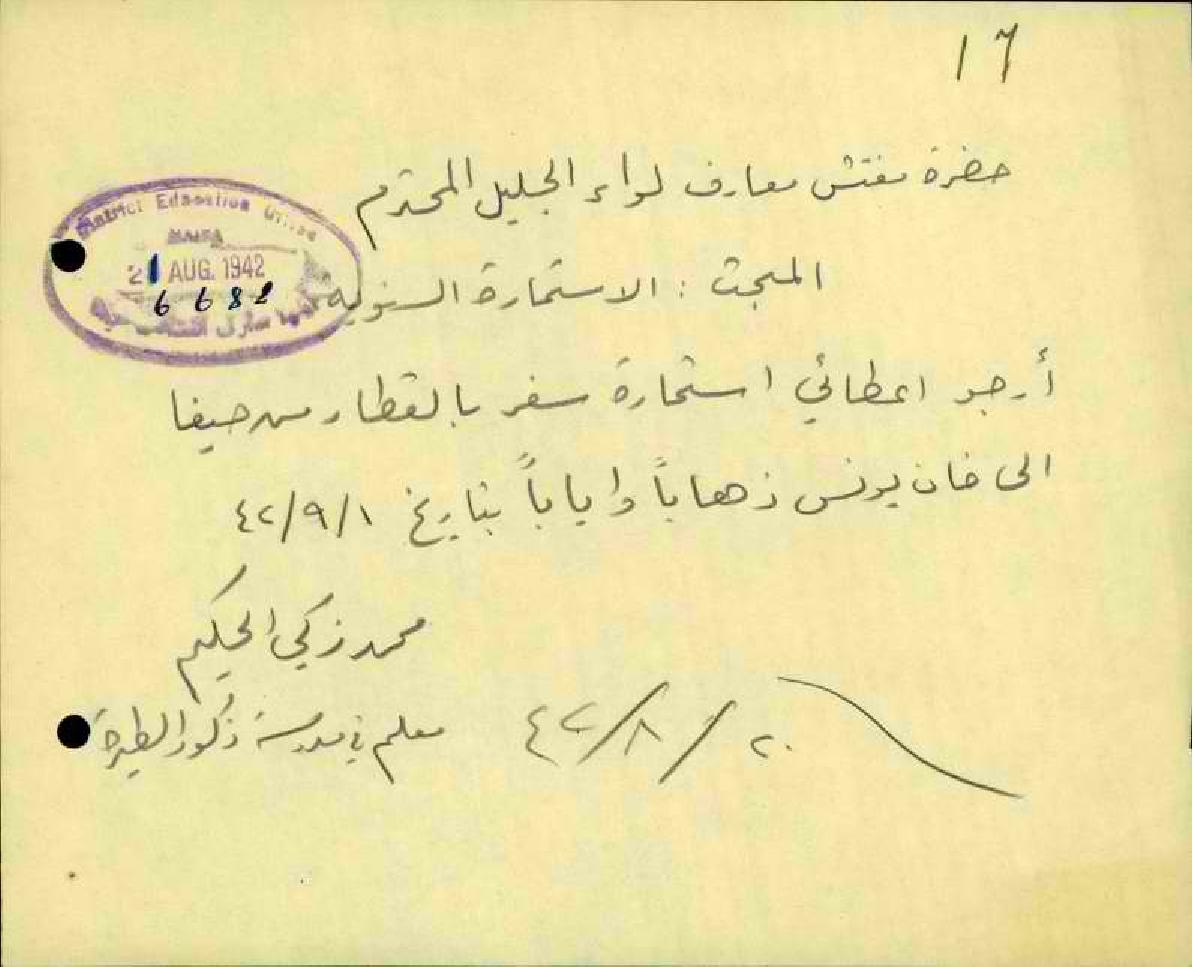 ١٦
حضرة مفتش معارف لواء الجليل المحترم
District Education Office
HAIFA
21 AUG. 1942
6682
المبحث : الاستمارة السنوية
أرجو اعطائي استمارة سفر بالقطار من حيفا
الى خان يونس ذهاباً واياباً بتاريخ ٤٢/٩/١
محمد زكي الحكيم
معلم في مدرسة ذكور الطيرة
٤٢/٨/٢٠